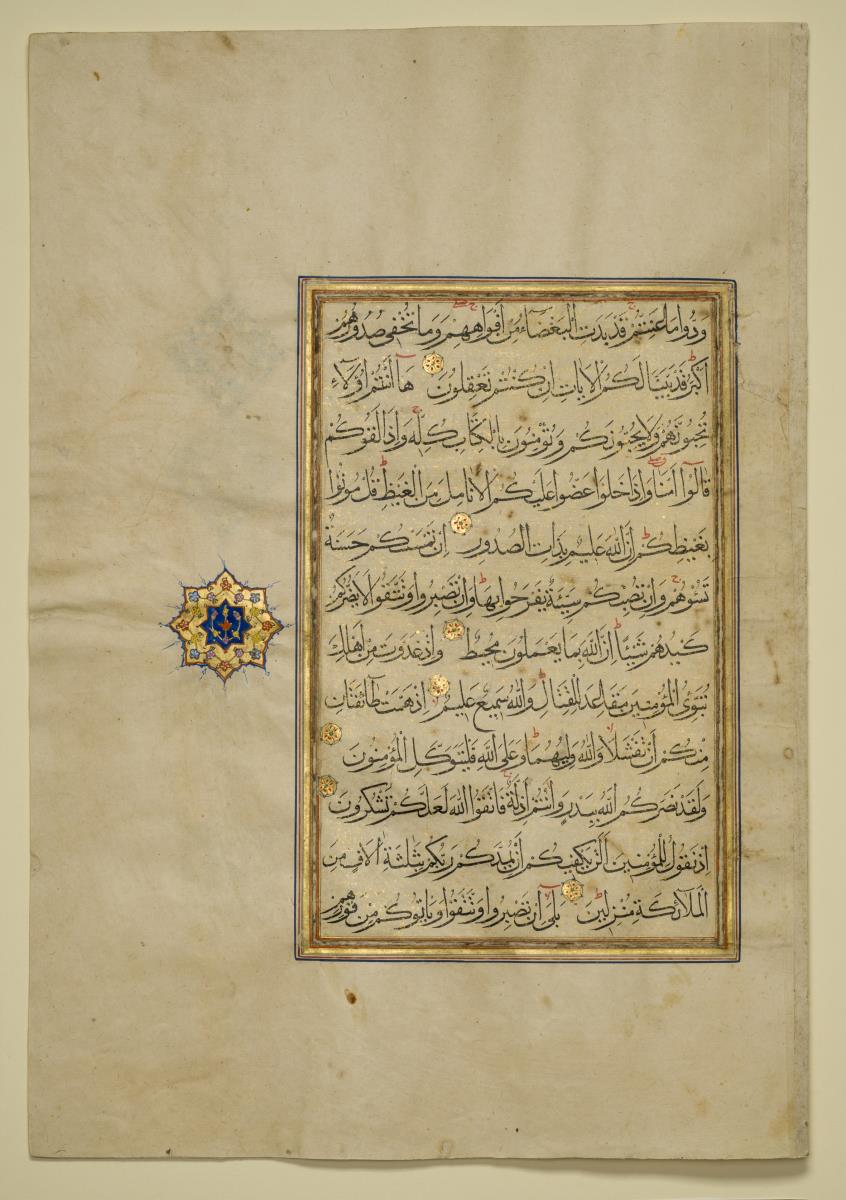 وَدُّوا مَا عَنِتُّمْ قَدْ بَدَتِ الْبَغْضَاءُ مِنْ أَفْوَاهِهِمْ وَمَا تُخْفِي صُدُورُهُمْ
أَكْبَرُ قَدْ بَيَّنَّا لَكُمُ الْآيَاتِ إِنْ كُنْتُمْ تَعْقِلُونَ هَا أَنْتُمْ أُولَاءِ
تُحِبُّونَهُمْ وَلَا يُحِبُّونَكُمْ وَتُؤْمِنُونَ بِالْكِتَابِ كُلِّهِ وَإِذَا لَقُوكُمْ
قَالُوا آمَنَّا وَإِذَا خَلَوْا عَضُّوا عَلَيْكُمُ الْأَنَامِلَ مِنَ الْغَيْظِ قُلْ مُوتُوا
بِغَيْظِكُمْ إِنَّ اللَّهَ عَلِيمٌ بِذَاتِ الصُّدُورِ إِنْ تَمْسَسْكُمْ حَسَنَةٌ
تَسُؤْهُمْ وَإِنْ تُصِبْكُمْ سَيِّئَةٌ يَفْرَحُوا بِهَا وَإِنْ تَصْبِرُوا وَتَتَّقُوا لَا يَضُرُّكُمْ
كَيْدُهُمْ شَيْئًا إِنَّ اللَّهَ بِمَا يَعْمَلُونَ مُحِيطٌ وَإِذْ غَدَوْتَ مِنْ أَهْلِكَ
تُبَوِّئُ الْمُؤْمِنِينَ مَقَاعِدَ لِلْقِتَالِ وَاللَّهُ سَمِيعٌ عَلِيمٌ إِذْ هَمَّتْ طَائِفَتَانِ
مِنْكُمْ أَنْ تَفْشَلَا وَاللَّهُ وَلِيُّهُمَا وَعَلَى اللَّهِ فَلْيَتَوَكَّلِ الْمُؤْمِنُونَ
وَلَقَدْ نَصَرَكُمُ اللَّهُ بِبَدْرٍ وَأَنْتُمْ أَذِلَّةٌ فَاتَّقُوا اللَّهَ لَعَلَّكُمْ تَشْكُرُونَ
إِذْ تَقُولُ لِلْمُؤْمِنِينَ أَلَنْ يَكْفِيَكُمْ أَنْ يُمِدَّكُمْ رَبُّكُمْ بِثَلَاثَةِ آلَافٍ مِنَ
الْمَلَائِكَةِ مُنْزَلِينَ بَلَى إِنْ تَصْبِرُوا وَتَتَّقُوا وَيَأْتُوكُمْ مِنْ فَوْرِهِمْ